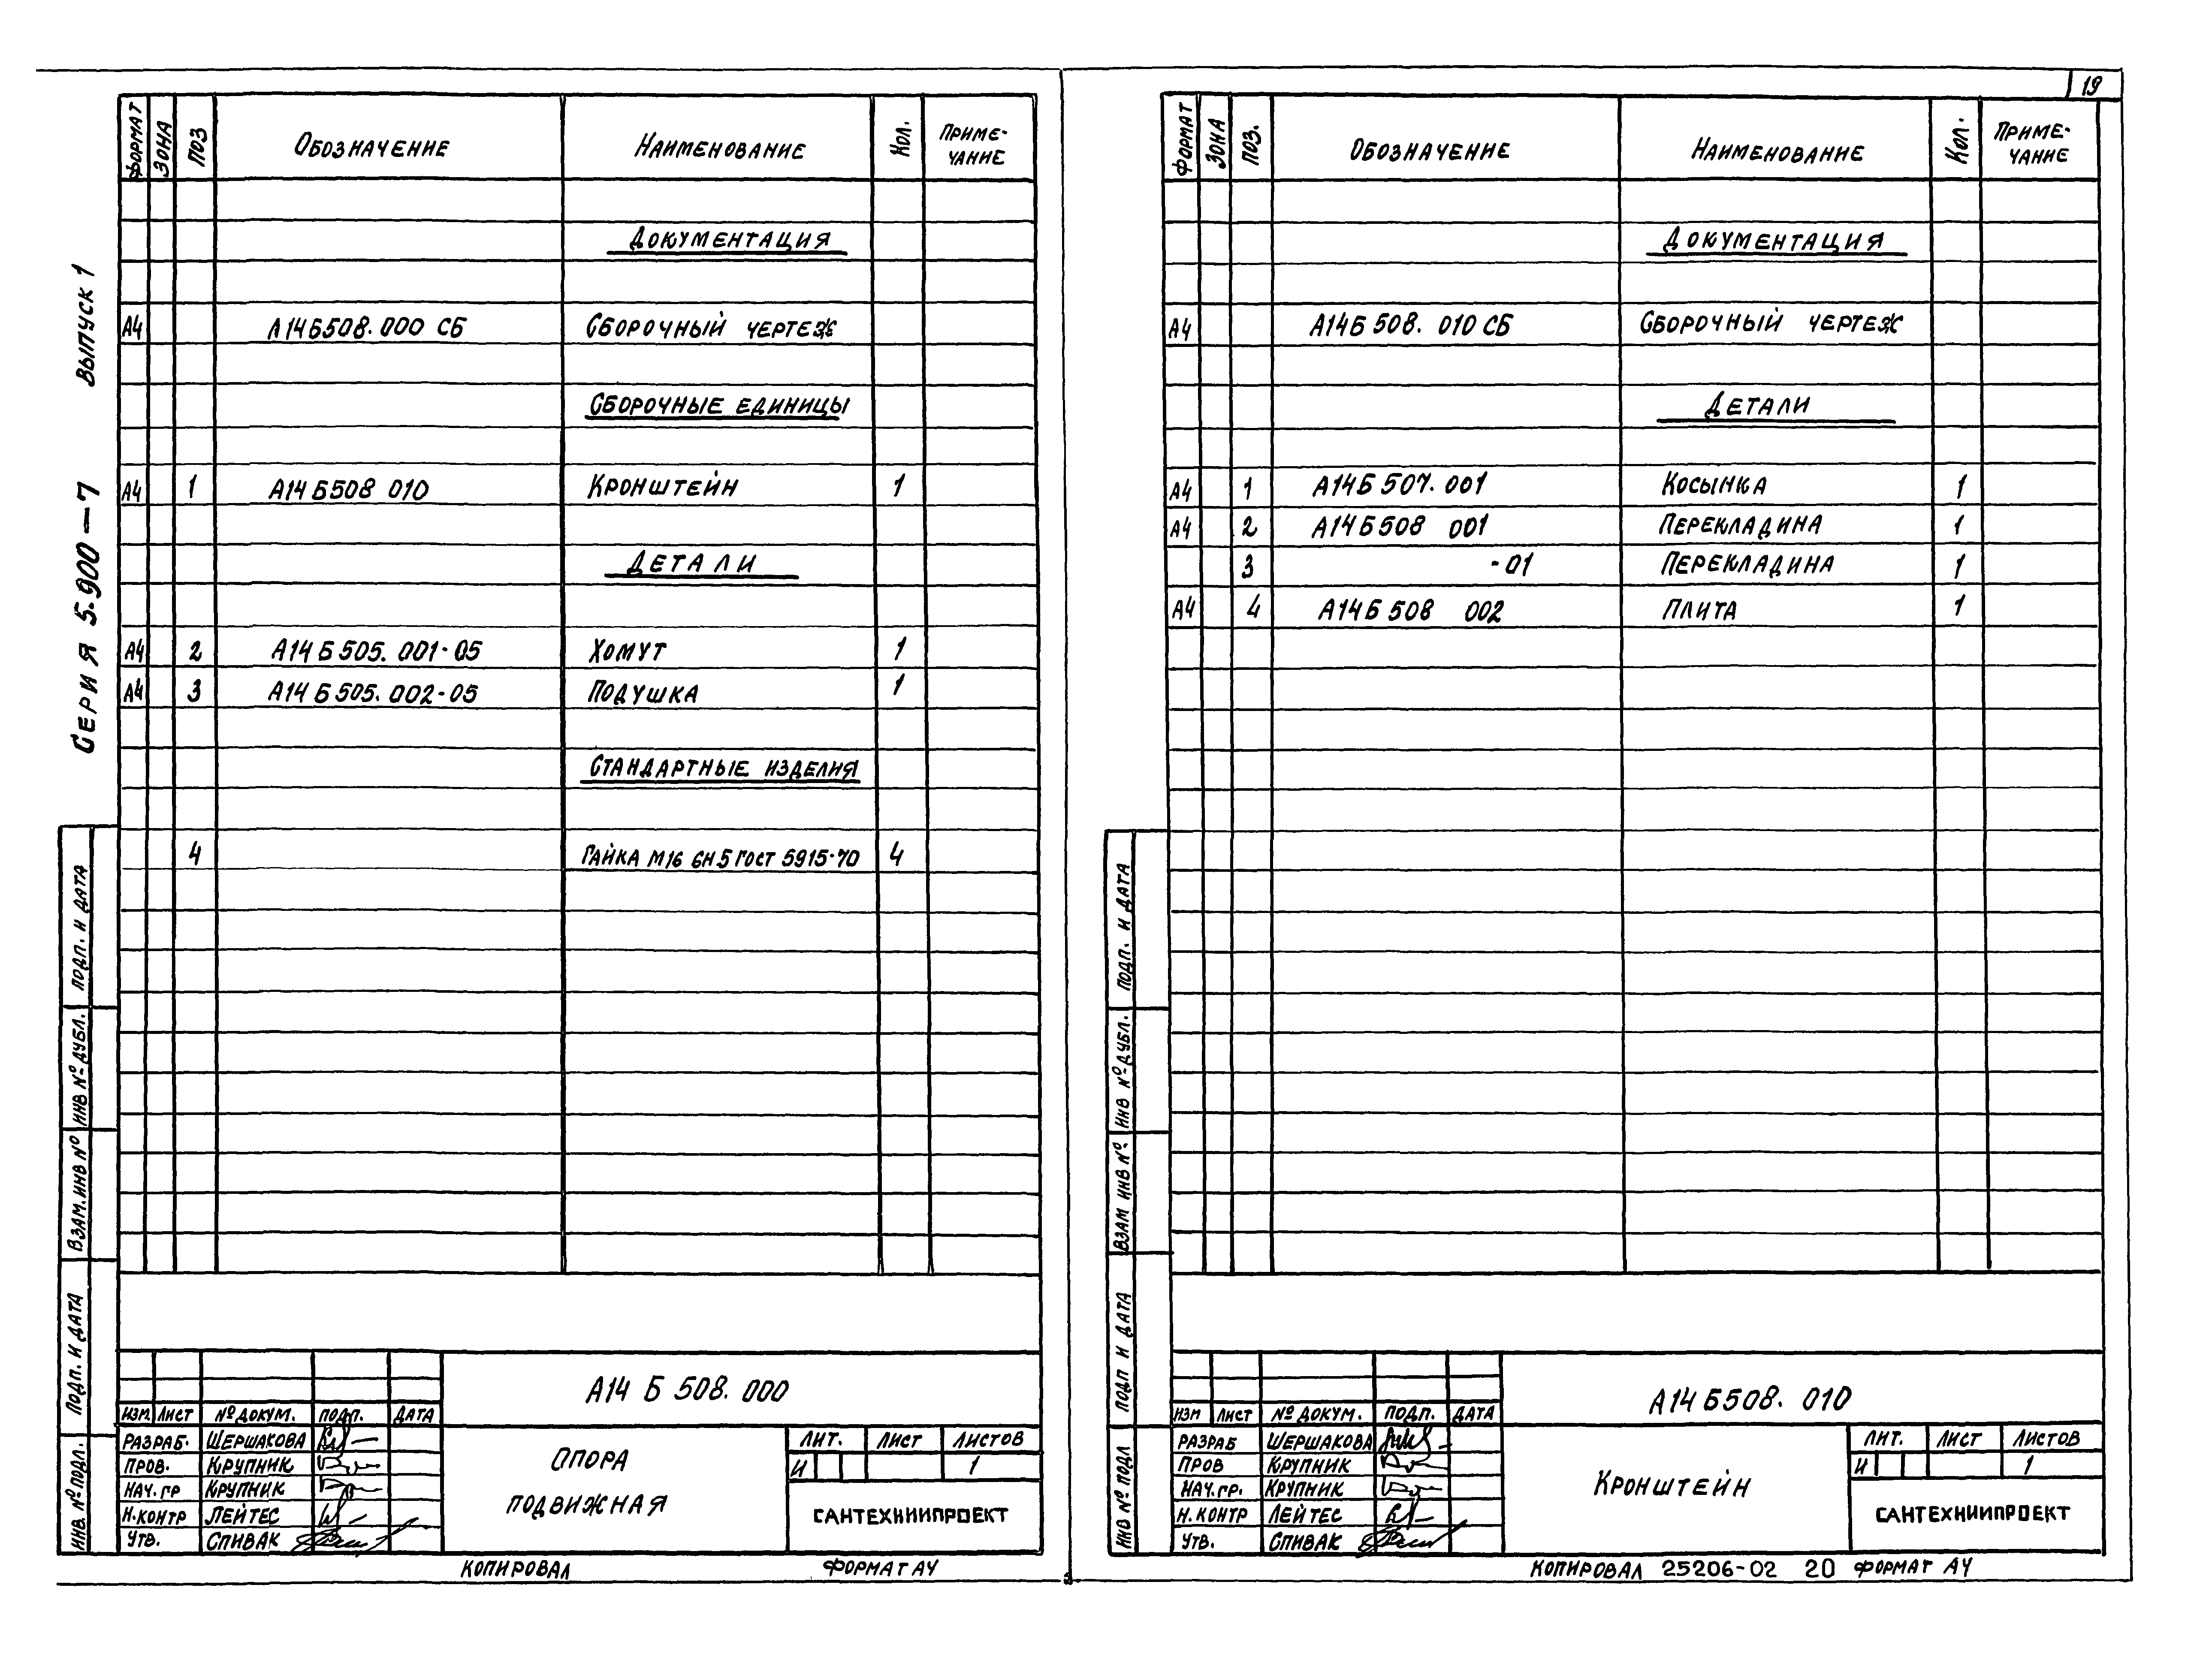 19
СЕРИЯ 5.900-7 ВЫПУСК 1
ФОРМАТ ЗОНА ПОЗ ОБОЗНАЧЕНИЕ НАИМЕНОВАНИЕ КОЛ. ПРИМЕ-
ЧАНИЕ
ДОКУМЕНТАЦИЯ
А4 А14Б508.000 СБ СБОРОЧНЫЙ ЧЕРТЕЖ
СБОРОЧНЫЕ ЕДИНИЦЫ
А4 1 А14Б508 010 КРОНШТЕЙН 1
ДЕТАЛИ
А4 2 А14Б505.001-05 ХОМУТ 1
А4 3 А14Б505.002-05 ПОДУШКА 1
СТАНДАРТНЫЕ ИЗДЕЛИЯ
4 ГАЙКА М16 6Н5 ГОСТ 5915-70 4
ПОДП. И ДАТА
ИНВ №ДУБЛ.
ВЗАМ.ИНВ №
ПОДП. И ДАТА
ИНВ. №ПОДЛ.
А14 Б 508. 000
ИЗМ. ЛИСТ № ДОКУМ. ПОДП. ДАТА
РАЗРАБ. ШЕРШАКОВА
ПРОВ. КРУПНИК
НАЧ.ГР КРУПНИК
Н.КОНТР ЛЕЙТЕС
УТВ. СПИВАК
ОПОРА
ПОДВИЖНАЯ
ЛИТ. ЛИСТ ЛИСТОВ
И 1
САНТЕХНИИПРОЕКТ
КОПИРОВАЛ ФОРМАТ А4
ФОРМАТ ЗОНА ПОЗ. ОБОЗНАЧЕНИЕ НАИМЕНОВАНИЕ КОЛ. ПРИМЕ-
ЧАНИЕ
ДОКУМЕНТАЦИЯ
А4 А14Б508. 010 СБ СБОРОЧНЫЙ ЧЕРТЕЖ
ДЕТАЛИ
А4 1 А14Б507.001 КОСЫНКА 1
А4 2 А14Б508 001 ПЕРЕКЛАДИНА 1
3 -01 ПЕРЕКЛАДИНА 1
А4 4 А14Б508 002 ПЛИТА 1
ПОДП. И ДАТА
ИНВ №ДУБЛ.
ВЗАМ ИНВ №
ПОДП И ДАТА
ИНВ № ПОДЛ
А14Б508. 010
ИЗМ ЛИСТ № ДОКУМ. ПОДП. ДАТА
РАЗРАБ ШЕРШАКОВА
ПРОВ КРУПНИК
НАЧ.ГР. КРУПНИК
Н.КОНТР ЛЕЙТЕС
УТВ. СПИВАК
КРОНШТЕЙН
ЛИТ. ЛИСТ ЛИСТОВ
И 1
САНТЕХНИИПРОЕКТ
КОПИРОВАЛ 25206-02 20 ФОРМАТ А4